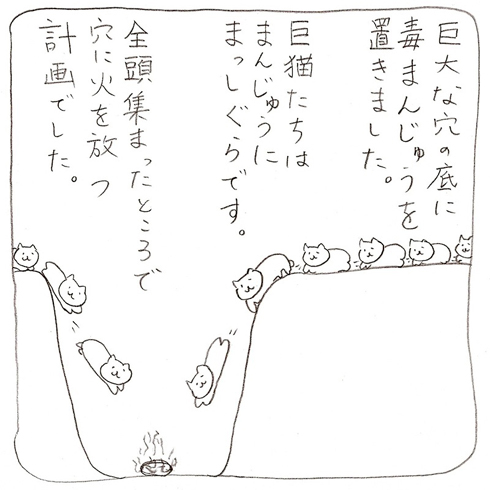 巨大な穴の底に
毒まんじゅうを
置きました。
巨猫たちは
まんじゅうに
まっしぐらです。
全頭集まったところで
穴に火を放つ
計画でした。